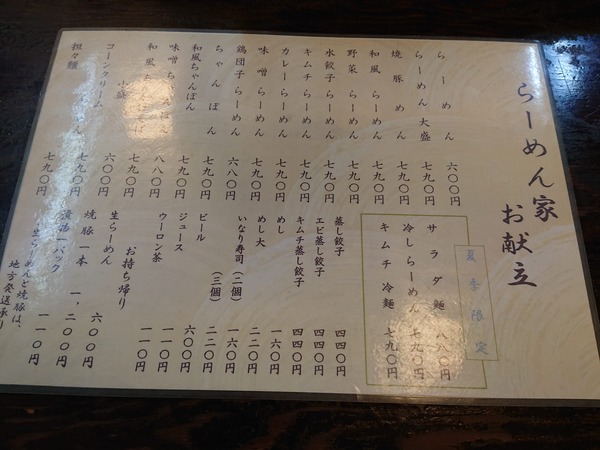 らーめん家
お献立
らーめん 六〇〇円
らーめん大盛 七九〇円
焼豚めん 七九〇円
和風らーめん 七九〇円
野菜らーめん 七九〇円
水餃子らーめん 七九〇円
キムチらーめん 七九〇円
カレーらーめん 七九〇円
味噌らーめん 七九〇円
鶏団子らーめん 六八〇円
ちゃんぽん 七九〇円
和風ちゃんぽん 七九〇円
味噌ちゃんぽん 八八〇円
和風ちゃんぽん 七九〇円
小盛 六〇〇円
コーンクリーム 七九〇円
担々麺 七九〇円
夏季限定
サラダ麺 八八〇円
冷しらーめん 七九〇円
キムチ冷麺 七九〇円
蒸し餃子 四四〇円
エビ蒸し餃子 四四〇円
キムチ蒸し餃子 四四〇円
めし 一六〇円
めし大 二二〇円
いなり寿司（二個） 一六〇円
（三個） 二二〇円
ビール 六〇〇円
ジュース 一一〇円
ウーロン茶 一一〇円
お持ち帰り
生らーめん 六〇〇円
焼豚一本 一、二〇〇円
一パック 一一〇円
生らーめんと焼豚は、
地方発送承り